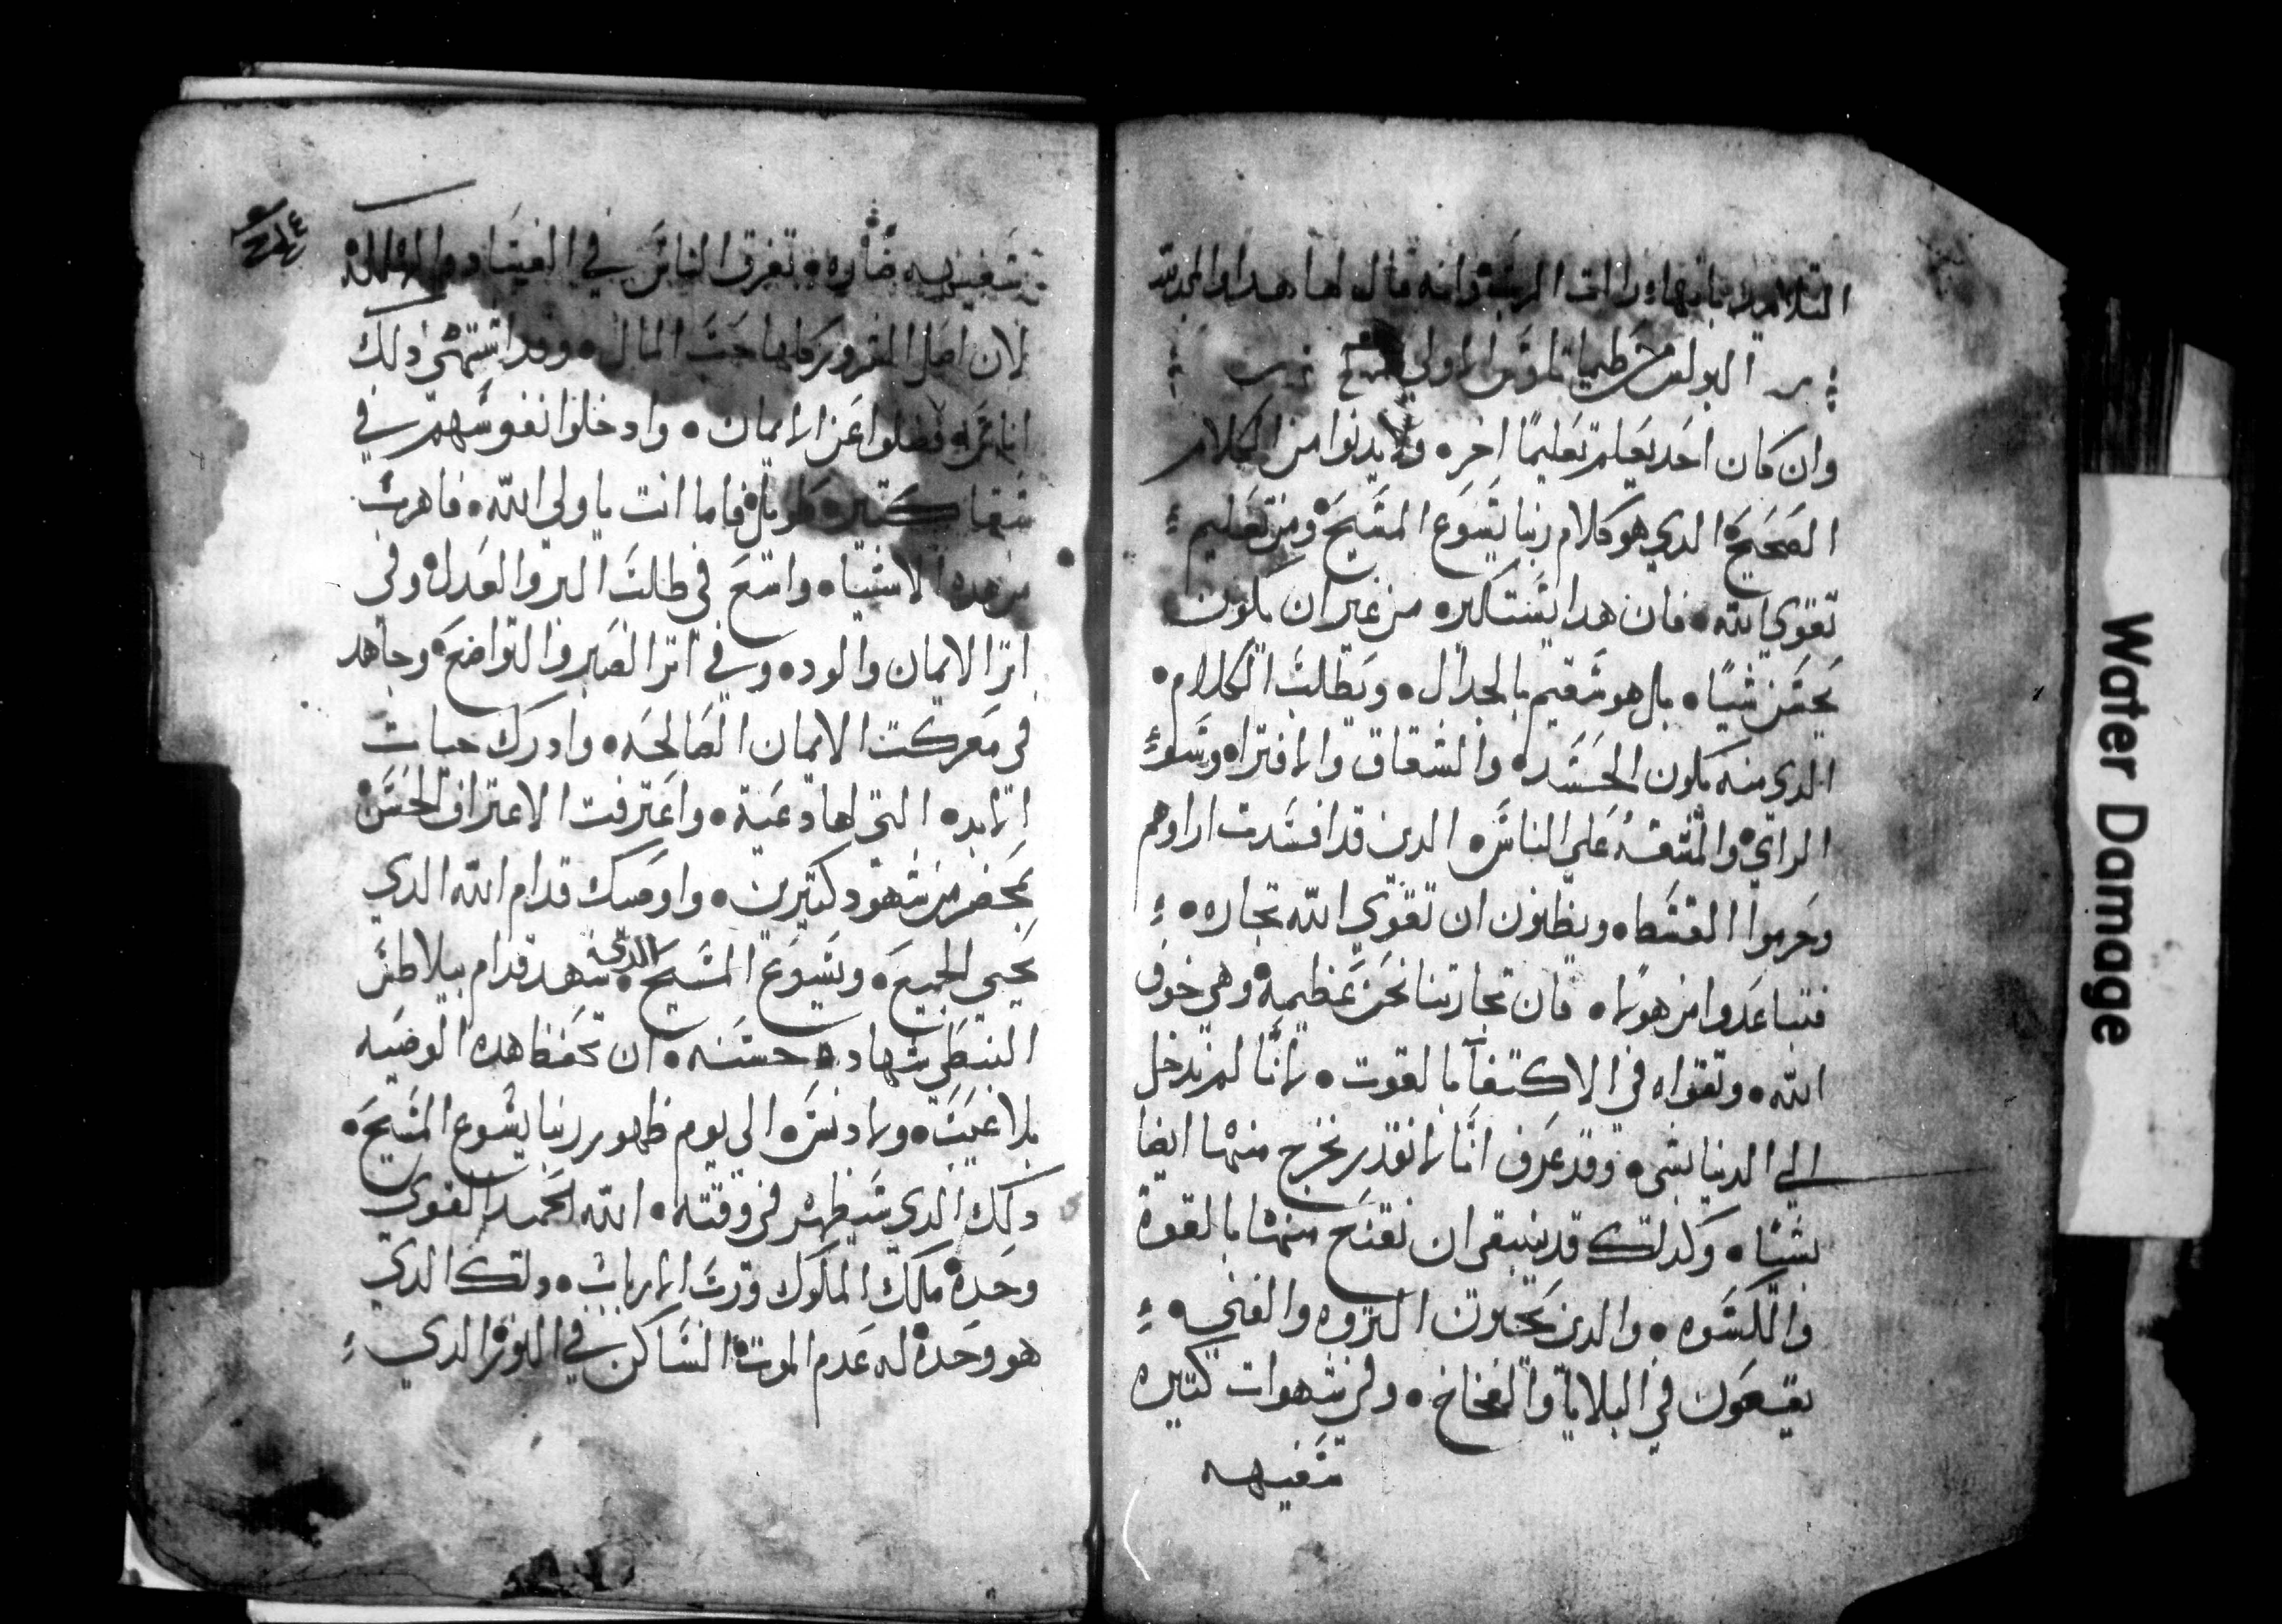 التلاميد بانها رات الرب وانه قال لها هدا والمجد لله
البولس من طيماتاوس الاولي
وان كان احد يعلم تعليمًا اخر • ولا يدنوا من الكلام
الصحيح الدي هو كلام ربنا يسوع المسيح ومن تعليم
تقوي الله • فان هدا يستكبر • من غير ان يكون
يحسن شيًا • بل هو سقيم بالجدال • ويطلب الكلام •
الدي منه يكون الحسد • والشقاق والافتراه وسو
الراي • والمشقه علي الناس • الدين قد افسدت اراوهم
وحرموا القسط • ويظنون ان تقوي الله تجاره •
فتباعدوا من هولا • فان تجارتنا نحن عظيمة وهي خوف
الله • وتقواه في الاكتفا بالقوت • لانا لم ندخل
الي الدنيا بشي • وقد عرف انا لا نقدر نخرج منها ايضا
بشيًا • وكدلك قد ينبقى ان نقنع منها بالقوة
والكسوه • والدين يحبون التروه والغني •
يقعون في البلايا والفخاخ • وفي شهوات كتيره
سفيهه
سفيهيه ضاره • تغرق الناس في الفساد والهلكه
لان اصل الشرور كلها حب المال • وقد اشتهى دلك
اناس فضلوا عن الايمان • وادخلوا نفوسهم في
شقا كتير طويل فاما انت يا ولي الله • فاهرب
من هده الاشيا • واسع في طلب البر والعدل وفي
اتر الايمان والود • وفي اتر الصبر والتواضع • وجاهد
في معركت الايمان الصالحه • وادرك حيات
الابد • التي لها دعية • واعترفت الاعتراف الحسن
بمحضر من شهود كتيرين • واوصيك قدام الله الدي
يحيي الجميع • ويسوع المسيح • الدي شهد قدام بيلاطس
النبطي شهاده حسنه • ان تحفظ هده الوصيه
بلا عيب • ولا دنس • الى يوم ظهور ربنا يسوع المسيح •
دلك الدي سيظهر في وقته • الله الحميد القوي
وحده ملك الملوك ورب الارباب • دلك الدي
هو وحده له عدم الموت • الساكن في النور الدي